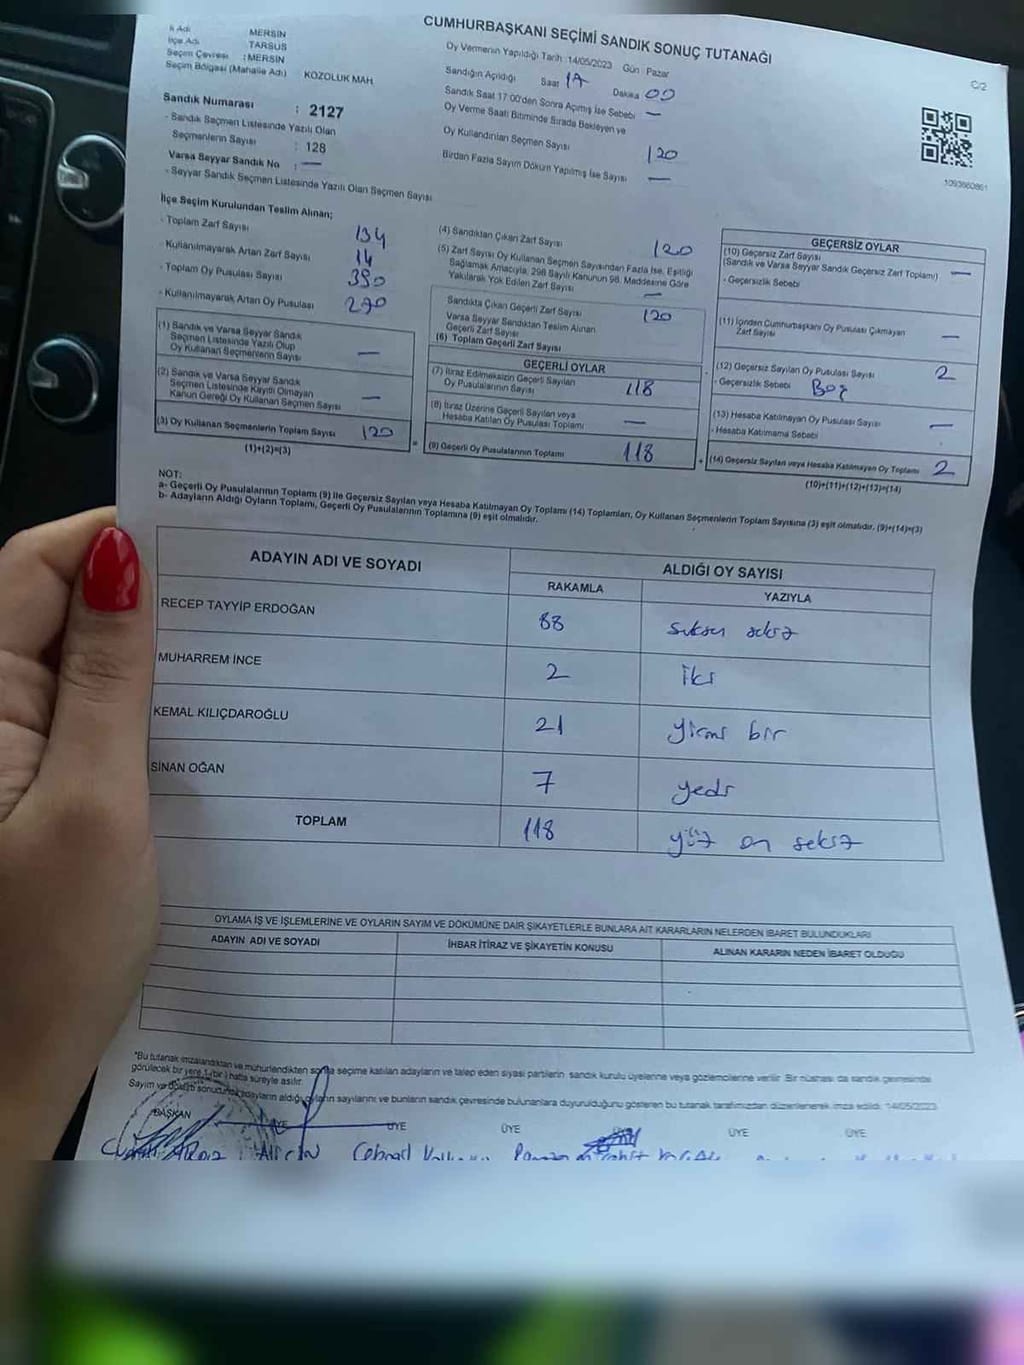 CUMHURBAŞKANI SEÇİMİ SANDIK SONUÇ TUTANAĞI
C/2
İl Adı MERSİN
İlçe Adı TARSUS
Seçim Çevresi : MERSİN
Seçim Bölgesi (Mahalle Adı) : KOZOLUK MAH.
Sandık Numarası : 2127
- Sandık Seçmen Listesinde Yazılı Olan
Seçmenlerin Sayısı : 128
Varsa Seyyar Sandık No : —
- Seyyar Sandık Seçmen Listesinde Yazılı Olan Seçmen Sayısı
Oy Vermenin Yapıldığı Tarih 14/05/2023 Gün : Pazar
Sandığın Açıldığı Saat 17 Dakika 00
Sandık Saat 17:00'den Sonra Açılmış İse Sebebi —
Oy Verme Saati Bitiminde Sırada Bekleyen ve
Oy Kullandırılan Seçmen Sayısı 120
Birden Fazla Sayım Döküm Yapılmış İse Sayısı —
1093660861
İlçe Seçim Kurulundan Teslim Alınan;
- Toplam Zarf Sayısı 134
- Kullanılmayarak Artan Zarf Sayısı 14
- Toplam Oy Pusulası Sayısı 390
- Kullanılmayarak Artan Oy Pusulası 270
(1) Sandık ve Varsa Seyyar Sandık
Seçmen Listesinde Yazılı Olup
Oy Kullanan Seçmenlerin Sayısı —
(2) Sandık ve Varsa Seyyar Sandık
Seçmen Listesinde Kayıtlı Olmayan
Kanun Gereği Oy Kullanan Seçmen Sayısı —
(3) Oy Kullanan Seçmenlerin Toplam Sayısı 120
(1)+(2)=(3)
(4) Sandıktan Çıkan Zarf Sayısı 120
(5) Zarf Sayısı Oy Kullanan Seçmen Sayısından Fazla İse, Eşitliği
Sağlamak Amacıyla, 298 Sayılı Kanunun 98. Maddesine Göre
Yakılarak Yok Edilen Zarf Sayısı —
Sandıkta Çıkan Geçerli Zarf Sayısı 120
Varsa Seyyar Sandıktan Teslim Alınan
Geçerli Zarf Sayısı
(6) Toplam Geçerli Zarf Sayısı
GEÇERLİ OYLAR
(7) İtiraz Edilmeksizin Geçerli Sayılan
Oy Pusulalarının Sayısı 118
(8) İtiraz Üzerine Geçerli Sayılan veya
Hesaba Katılan Oy Pusulası Toplamı —
(9) Geçerli Oy Pusulalarının Toplamı 118
GEÇERSİZ OYLAR
(10) Geçersiz Zarf Sayısı
(Sandık ve Varsa Seyyar Sandık Geçersiz Zarf Toplamı) —
- Geçersizlik Sebebi
(11) İçinden Cumhurbaşkanı Oy Pusulası Çıkmayan
Zarf Sayısı —
(12) Geçersiz Sayılan Oy Pusulası Sayısı 2
- Geçersizlik Sebebi Boş
(13) Hesaba Katılmayan Oy Pusulası Sayısı —
- Hesaba Katılmama Sebebi
(14) Geçersiz Sayılan veya Hesaba Katılmayan Oy Toplamı 2
(10)+(11)+(12)+(13)=(14)
NOT:
a- Geçerli Oy Pusulalarının Toplamı (9) ile Geçersiz Sayılan veya Hesaba Katılmayan Oy Toplamı (14) Toplamları, Oy Kullanan Seçmenlerin Toplam Sayısına (3) eşit olmalıdır. (9)+(14)=(3)
b- Adayların Aldığı Oyların Toplamı, Geçerli Oy Pusulalarının Toplamına (9) eşit olmalıdır.
ADAYIN ADI VE SOYADI ALDIĞI OY SAYISI
RAKAMLA YAZIYLA
RECEP TAYYİP ERDOĞAN 88 seksen sekiz
MUHARREM İNCE 2 iki
KEMAL KILIÇDAROĞLU 21 yirmi bir
SİNAN OĞAN 7 yedi
TOPLAM 118 yüz on sekiz
OYLAMA İŞ VE İŞLEMLERİNE VE OYLARIN SAYIM VE DÖKÜMÜNE DAİR ŞİKAYETLERLE BUNLARA AİT KARARLARIN NELERDEN İBARET BULUNDUKLARI
ADAYIN ADI VE SOYADI İHBAR İTİRAZ VE ŞİKAYETİN KONUSU ALINAN KARARIN NEDEN İBARET OLDUĞU
"Bu tutanak imzalandıktan ve mühürlendikten sonra seçime katılan adayların ve talep eden siyasi partilerin sandık kurulu üyelerine veya gözlemcilerine verilir. Bir nüshası da sandık çevresinde
görülecek bir yere 1 (bir) hafta süreyle asılır.
Sayım ve döküm sonucunda adayların aldığı oyların sayılarını ve bunların sandık çevresinde bulunanlara duyurulduğunu gösteren bu tutanak tarafımızdan düzenlenerek imza edildi. 14/05/2023
BAŞKAN ÜYE ÜYE ÜYE ÜYE ÜYE